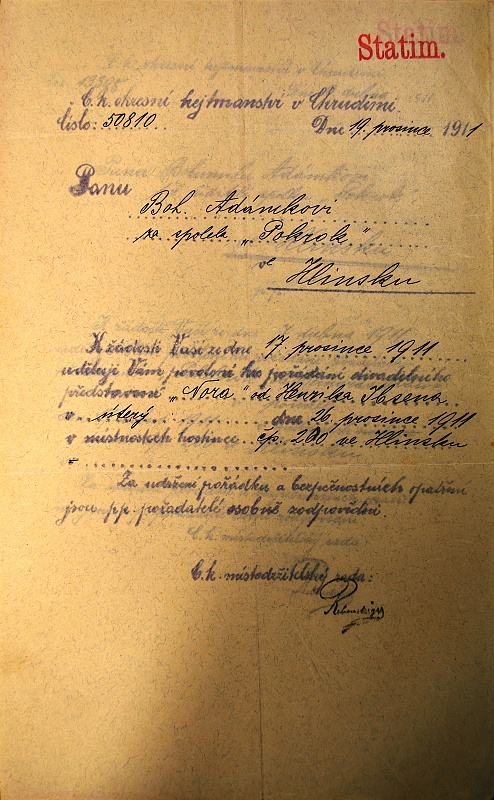 Statim.
C.k. okresní hejtmanství v Chrudimi.
Číslo: 50810 Dne 19. prosince 1911
Panu
Boh. Adámkovi
za spolek „Pokrok"
v
Hlinsku
K žádosti Vaší ze dne 17. prosince 1911
uděluji Vám povolení ku pořádání divadelního
představení „Nora" od Henrika Ibsena
v úterý dne 26. prosince 1911
v místnostech hostince čp. 200 ve Hlinsku
Za udržení pořádku a bezpečnostních opatření
jsou pp. pořadatelé osobně zodpovědni.
C.k. místodržitelský rada: